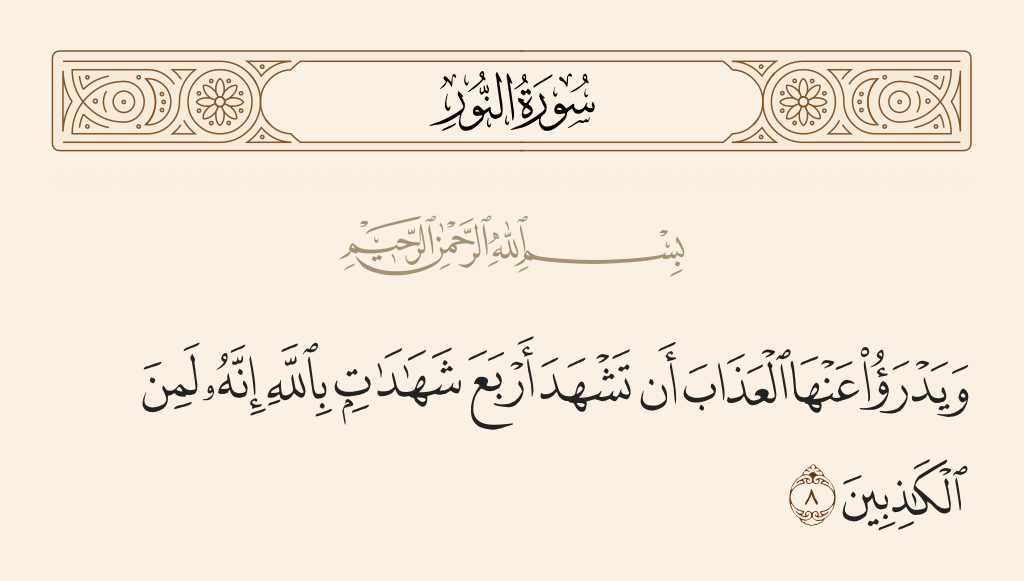 سُورَةُ النُّورِ
بِسْمِ ٱللَّهِ ٱلرَّحْمَٰنِ ٱلرَّحِيمِ
وَيَدْرَؤُا۟ عَنْهَا ٱلْعَذَابَ أَن تَشْهَدَ أَرْبَعَ شَهَٰدَٰتٍۭ بِٱللَّهِ إِنَّهُۥ لَمِنَ
ٱلْكَٰذِبِينَ ٨